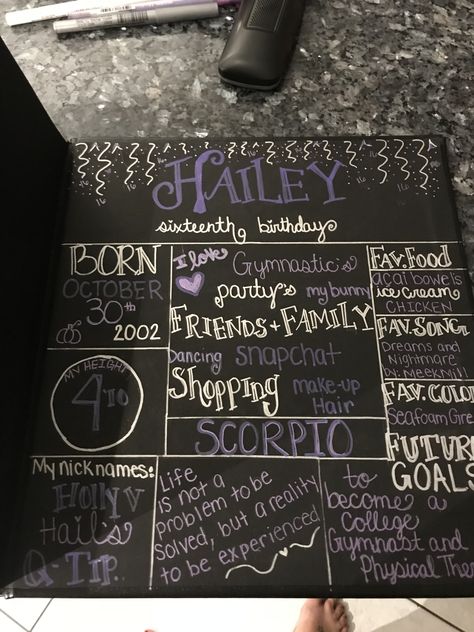 HAILEY
sixteenth birthday
BORN
OCTOBER
30th
2002
MY HEIGHT
4'10
My nicknames:
Holly V
Hail's
Q-Tip..
I love
Gymnastic's
party's
my bunny
FRIENDS + FAMILY
Dancing
snapchat
Shopping
make-up
Hair
SCORPIO
Life
is not a
problem to be
solved, but a reality
to be experienced
FAV. FOOD
açai bowel's
ice cream
CHICKEN
FAV. SONG
Dreams and
Nightmare
by: MeekMill
FAV. COLO
Seafoam Gre
FUTUR
GOALS
to
become a
College
Gymnast and
Physical Ther